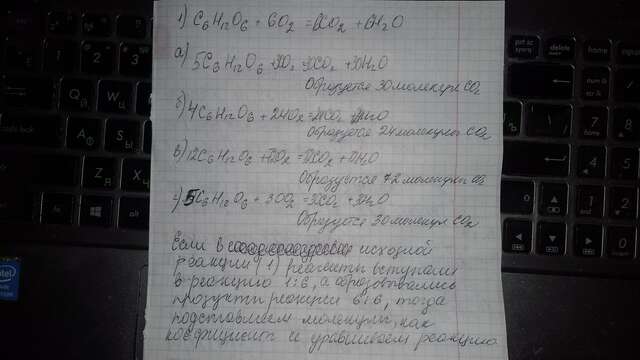 1) C6H12O6 + 6O2 = 6CO2 + 6H2O
а) 5C6H12O6 + 30O2 = 30CO2 + 30H2O
Образуется 30 молекул CO2
б) 4C6H12O6 + 24O2 = 24CO2 + 24H2O
Образуется 24 молекулы CO2
в) 12C6H12O6 + 72O2 = 72CO2 + 72H2O
Образуется 72 молекулы CO2
г) 5C6H12O6 + 30O2 = 30CO2 + 30H2O
Образуется 30 молекул CO2
Если в исходной
реакции (1) реагенты вступали
в реакцию 1:6, а образовывались
продукты реакции 6:6, тогда
подставляем молекулы, как
коэфициент и уравниваем реакцию
intel